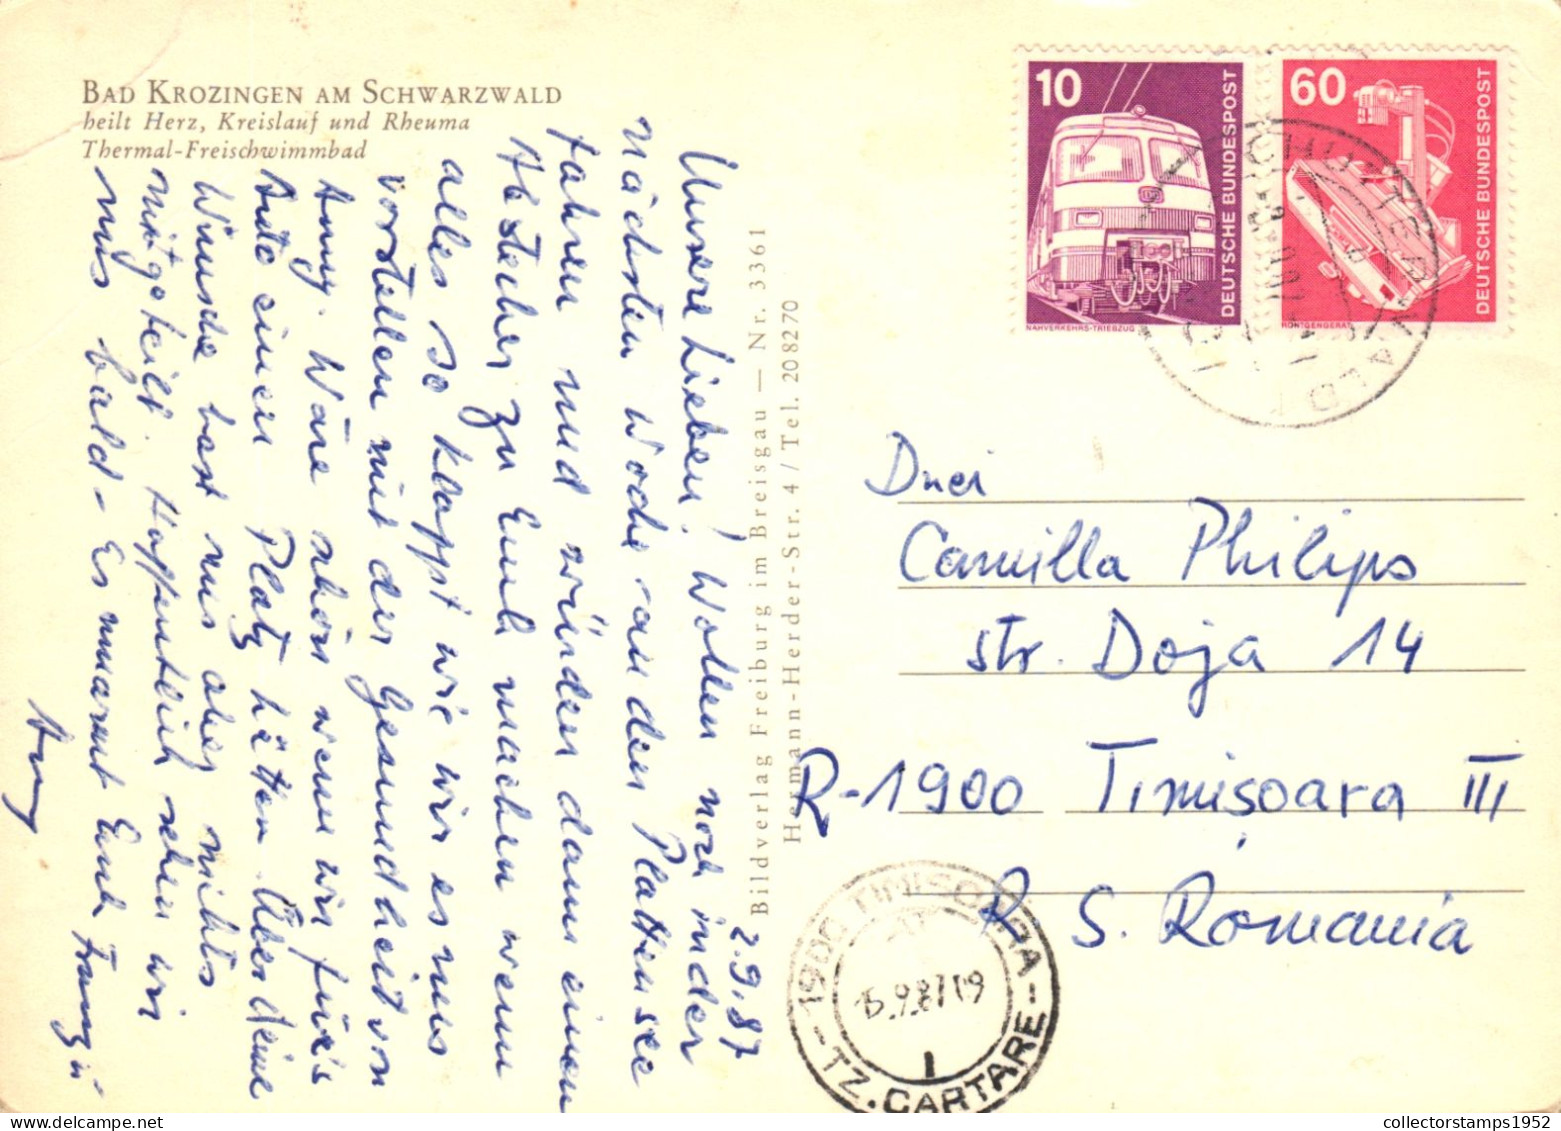 BAD KROZINGEN AM SCHWARZWALD
heilt Herz, Kreislauf und Rheuma
Thermal-Freischwimmbad
2.9.87
Unsere Lieben! Wollen noch in der
nächsten Woche an den Plattensee
fahren und würden dann einen
Abstecher zu Euch machen wenn
alles so klappt wie wir es uns
vorstellen mit der Gesundheit von
Anny. Wäre schön wenn wir für's
Auto einen Platz hätten. Über deine
Wünsche hast uns aber nichts
mitgeteilt. Hoffentlich sehen wir
uns bald - Es umarmt Euch
Anny
Bildverlag Freiburg im Breisgau — Nr. 3361
Hermann-Herder-Str. 4 / Tel. 208270
10
DEUTSCHE BUNDESPOST
NAHVERKEHRS-TRIEBZUG
60
DEUTSCHE BUNDESPOST
RÖNTGENGERÄT
Dnei
Camilla Philips
str. Doja 14
R-1900 Timişoara III
R S. Romania
1900 TIMISOARA
15.9.87 19
1
TZ. CARTARE
collectorstamps1952